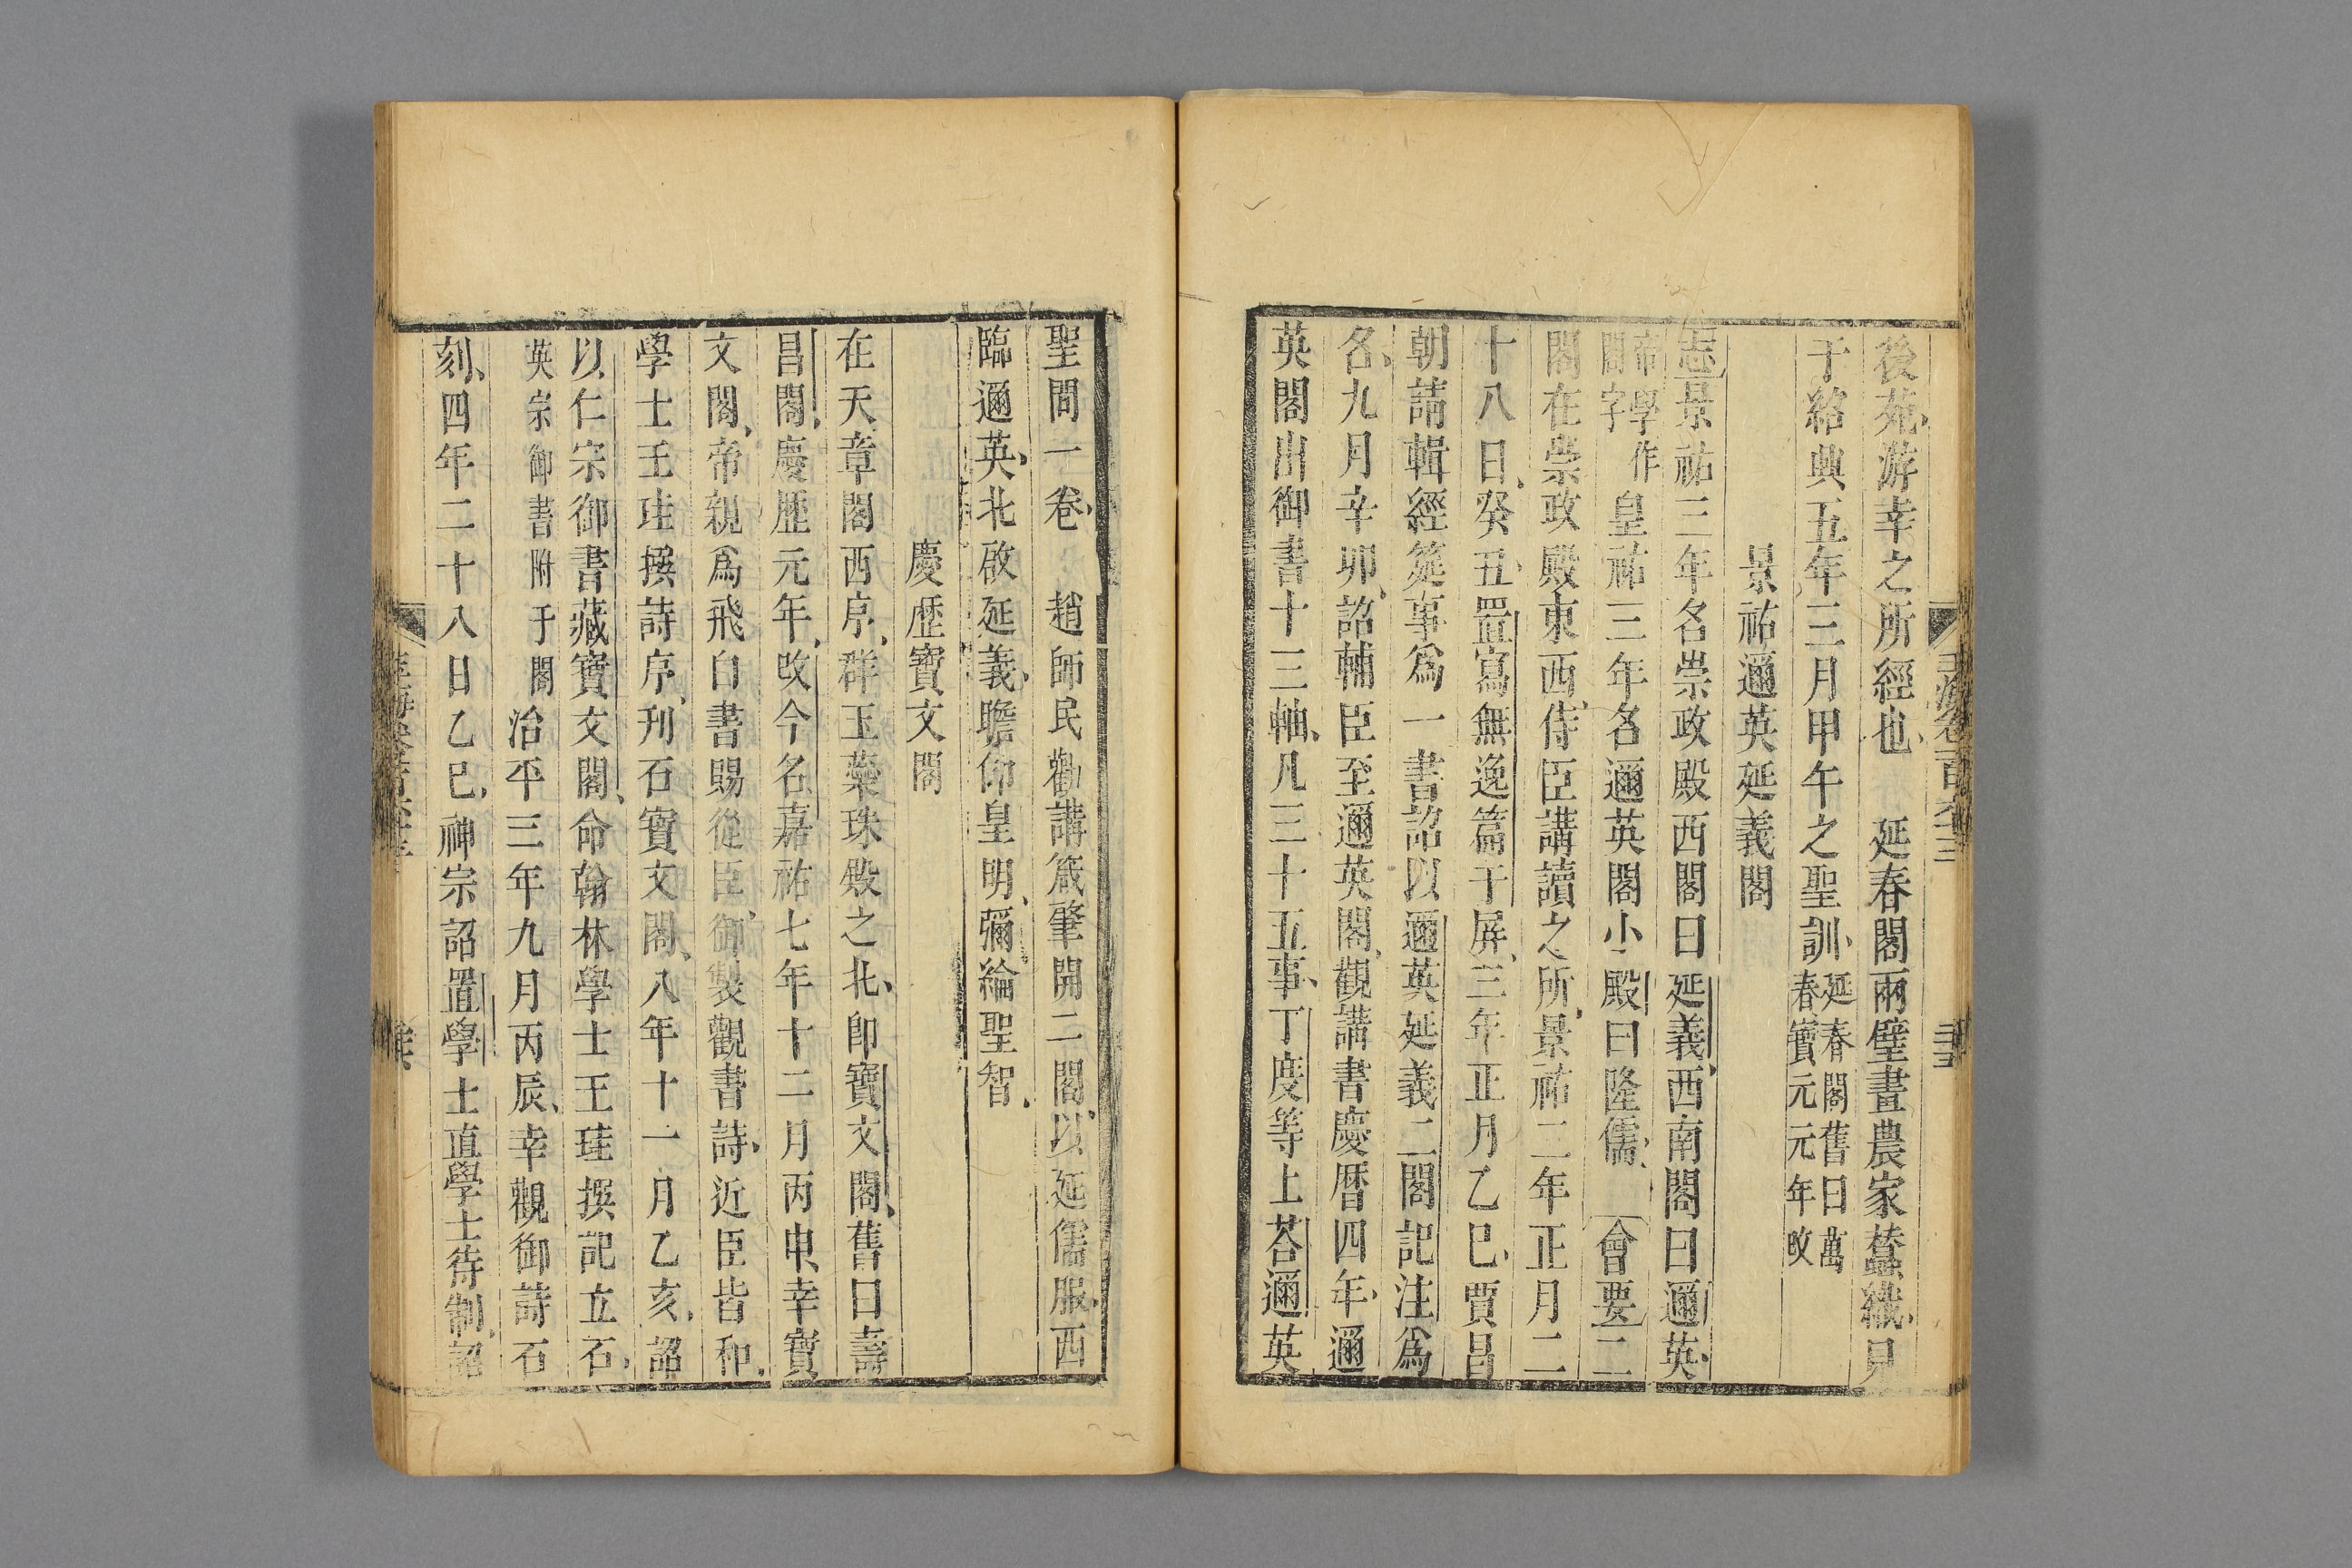 後苑游幸之所經也 延春閣兩壁畫農家蠶織見
于紹興五年三月甲午之聖訓延春閣舊曰萬春寶元元年改
景祐邇英延義閣
志景祐三年名崇政殿西閣曰延義西南閣曰邇英
帝學作閣字皇祐三年名邇英閣小殿曰隆儒 會要二
閣在崇政殿東西侍臣講讀之所景祐二年正月二
十八日癸丑置寫無逸篇于屏三年正月乙巳賈昌
朝請輯經筵事爲一書詔以邇英延義二閣記注爲
名九月辛卯詔輔臣至邇英閣觀講書慶曆四年邇
英閣出御書十三軸凡三十五事丁度等上荅邇英
聖問一卷 趙師民勸講箴肇開二閣以延儒服西
臨邇英北啟延義瞻仰皇明彌綸聖智
慶歷寶文閣
在天章閣西序群玉蘂珠殿之北卽寶文閣舊曰壽
昌閣慶歷元年改今名嘉祐七年十二月丙申幸寶
文閣帝親爲飛白書賜從臣御製觀書詩近臣皆和
學士王珪撰詩序刋石寶文閣八年十一月乙亥詔
以仁宗御書藏寶文閣命翰林學士王珪撰記立石
英宗御書附于閣治平三年九月丙辰幸觀御詩石
刻四年二十八日乙巳神宗詔置學士直學士待制詔